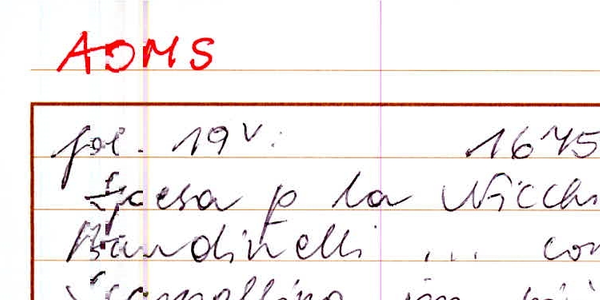 AOMS
fol. 19v. 1675
Spesa p la Nicch
Bandinelli ... con